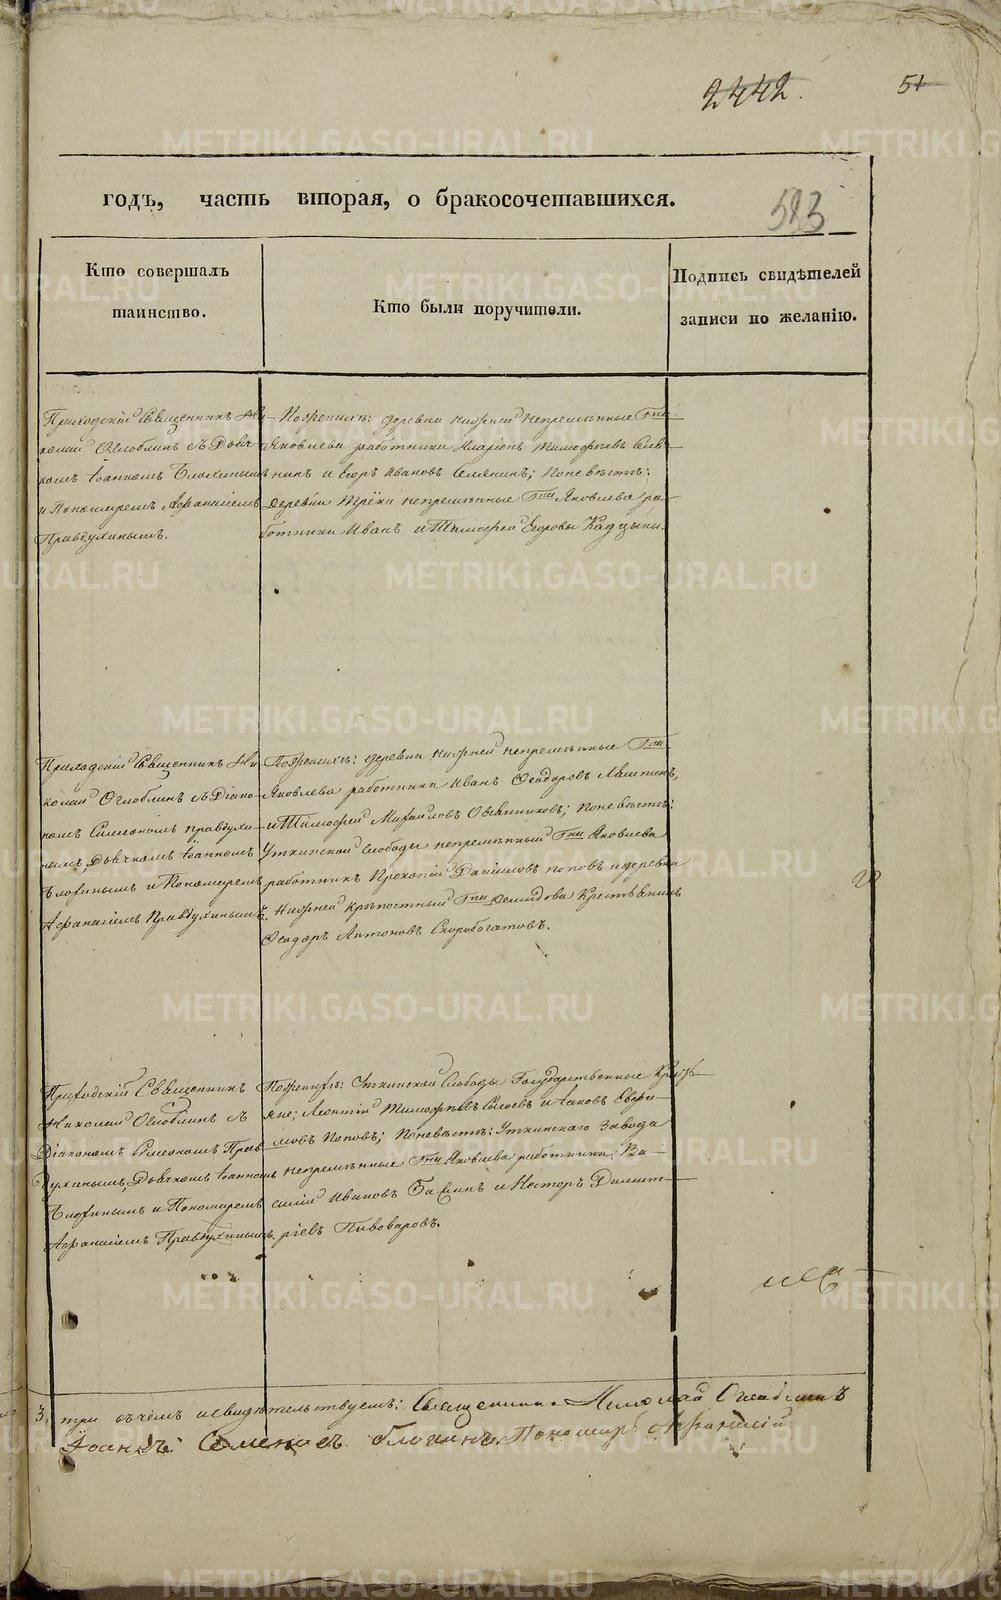 2442.
51
годъ, часть вторая, о бракосочетавшихся.
583
Кто совершалъ
таинство.
Кто были поручители.
Подпись свидѣтелей
записи по желанію.
Приходскій Священникъ Ни-
колай Оглоблинъ съ Дьяч-
комъ Іоанномъ Блохинымъ
и Пономаремъ Афанасіемъ
Правдухинымъ.
По женихѣ: деревни Нижней непремѣнные Гни
Яковлева работники Иларіонъ Тимофѣевъ
и Егоръ Ивановъ; по невѣстѣ:
деревни Трёки непремѣнные Гни Яковлева ра-
ботники Иванъ и Тимофей Егоровы Кадцыны.
Приходскій Священникъ Ни-
колай Оглоблинъ съ Діако-
номъ Симеономъ Правдухи-
нымъ, Дьячкомъ Іоанномъ
Блохинымъ и Пономаремъ
Афанасіемъ Правдухинымъ.
По женихѣ: деревни Нижней непремѣнные Гни
Яковлева работники Иванъ Феодоровъ Ляпинъ,
и Тимофей Михайловъ Овчинниковъ; по невѣстѣ:
Уткинской Слободы непремѣнный Гни Яковлева
работникъ Прокопій Даниловъ Поповъ и деревни
Нижней крѣпостный Гни Демидова Крестьянинъ
Феодоръ Антоновъ Скоробогатовъ.
Приходскій Священникъ
Николай Оглоблинъ съ
Діакономъ Симеономъ Прав-
духинымъ, Дьячкомъ Іоанномъ
Блохинымъ и Пономаремъ
Афанасіемъ Правдухинымъ.
По женихѣ: Уткинской Слободы Государственные Кресть-
яне: Леонтій Тимофѣевъ Сысоевъ и Іаковъ Ефи-
мовъ Поповъ; по невѣстѣ: Уткинскаго Завода
непремѣнные Гни Яковлева работники: Ва-
силій Ивановъ и Несторъ Димит-
ріевъ Пивоваровъ.
3, три въ чемъ и свидѣтельствуемъ: Священникъ Николай Оглоблинъ
Іоаннъ Семеновъ Блохинъ Пономарь Афанасій